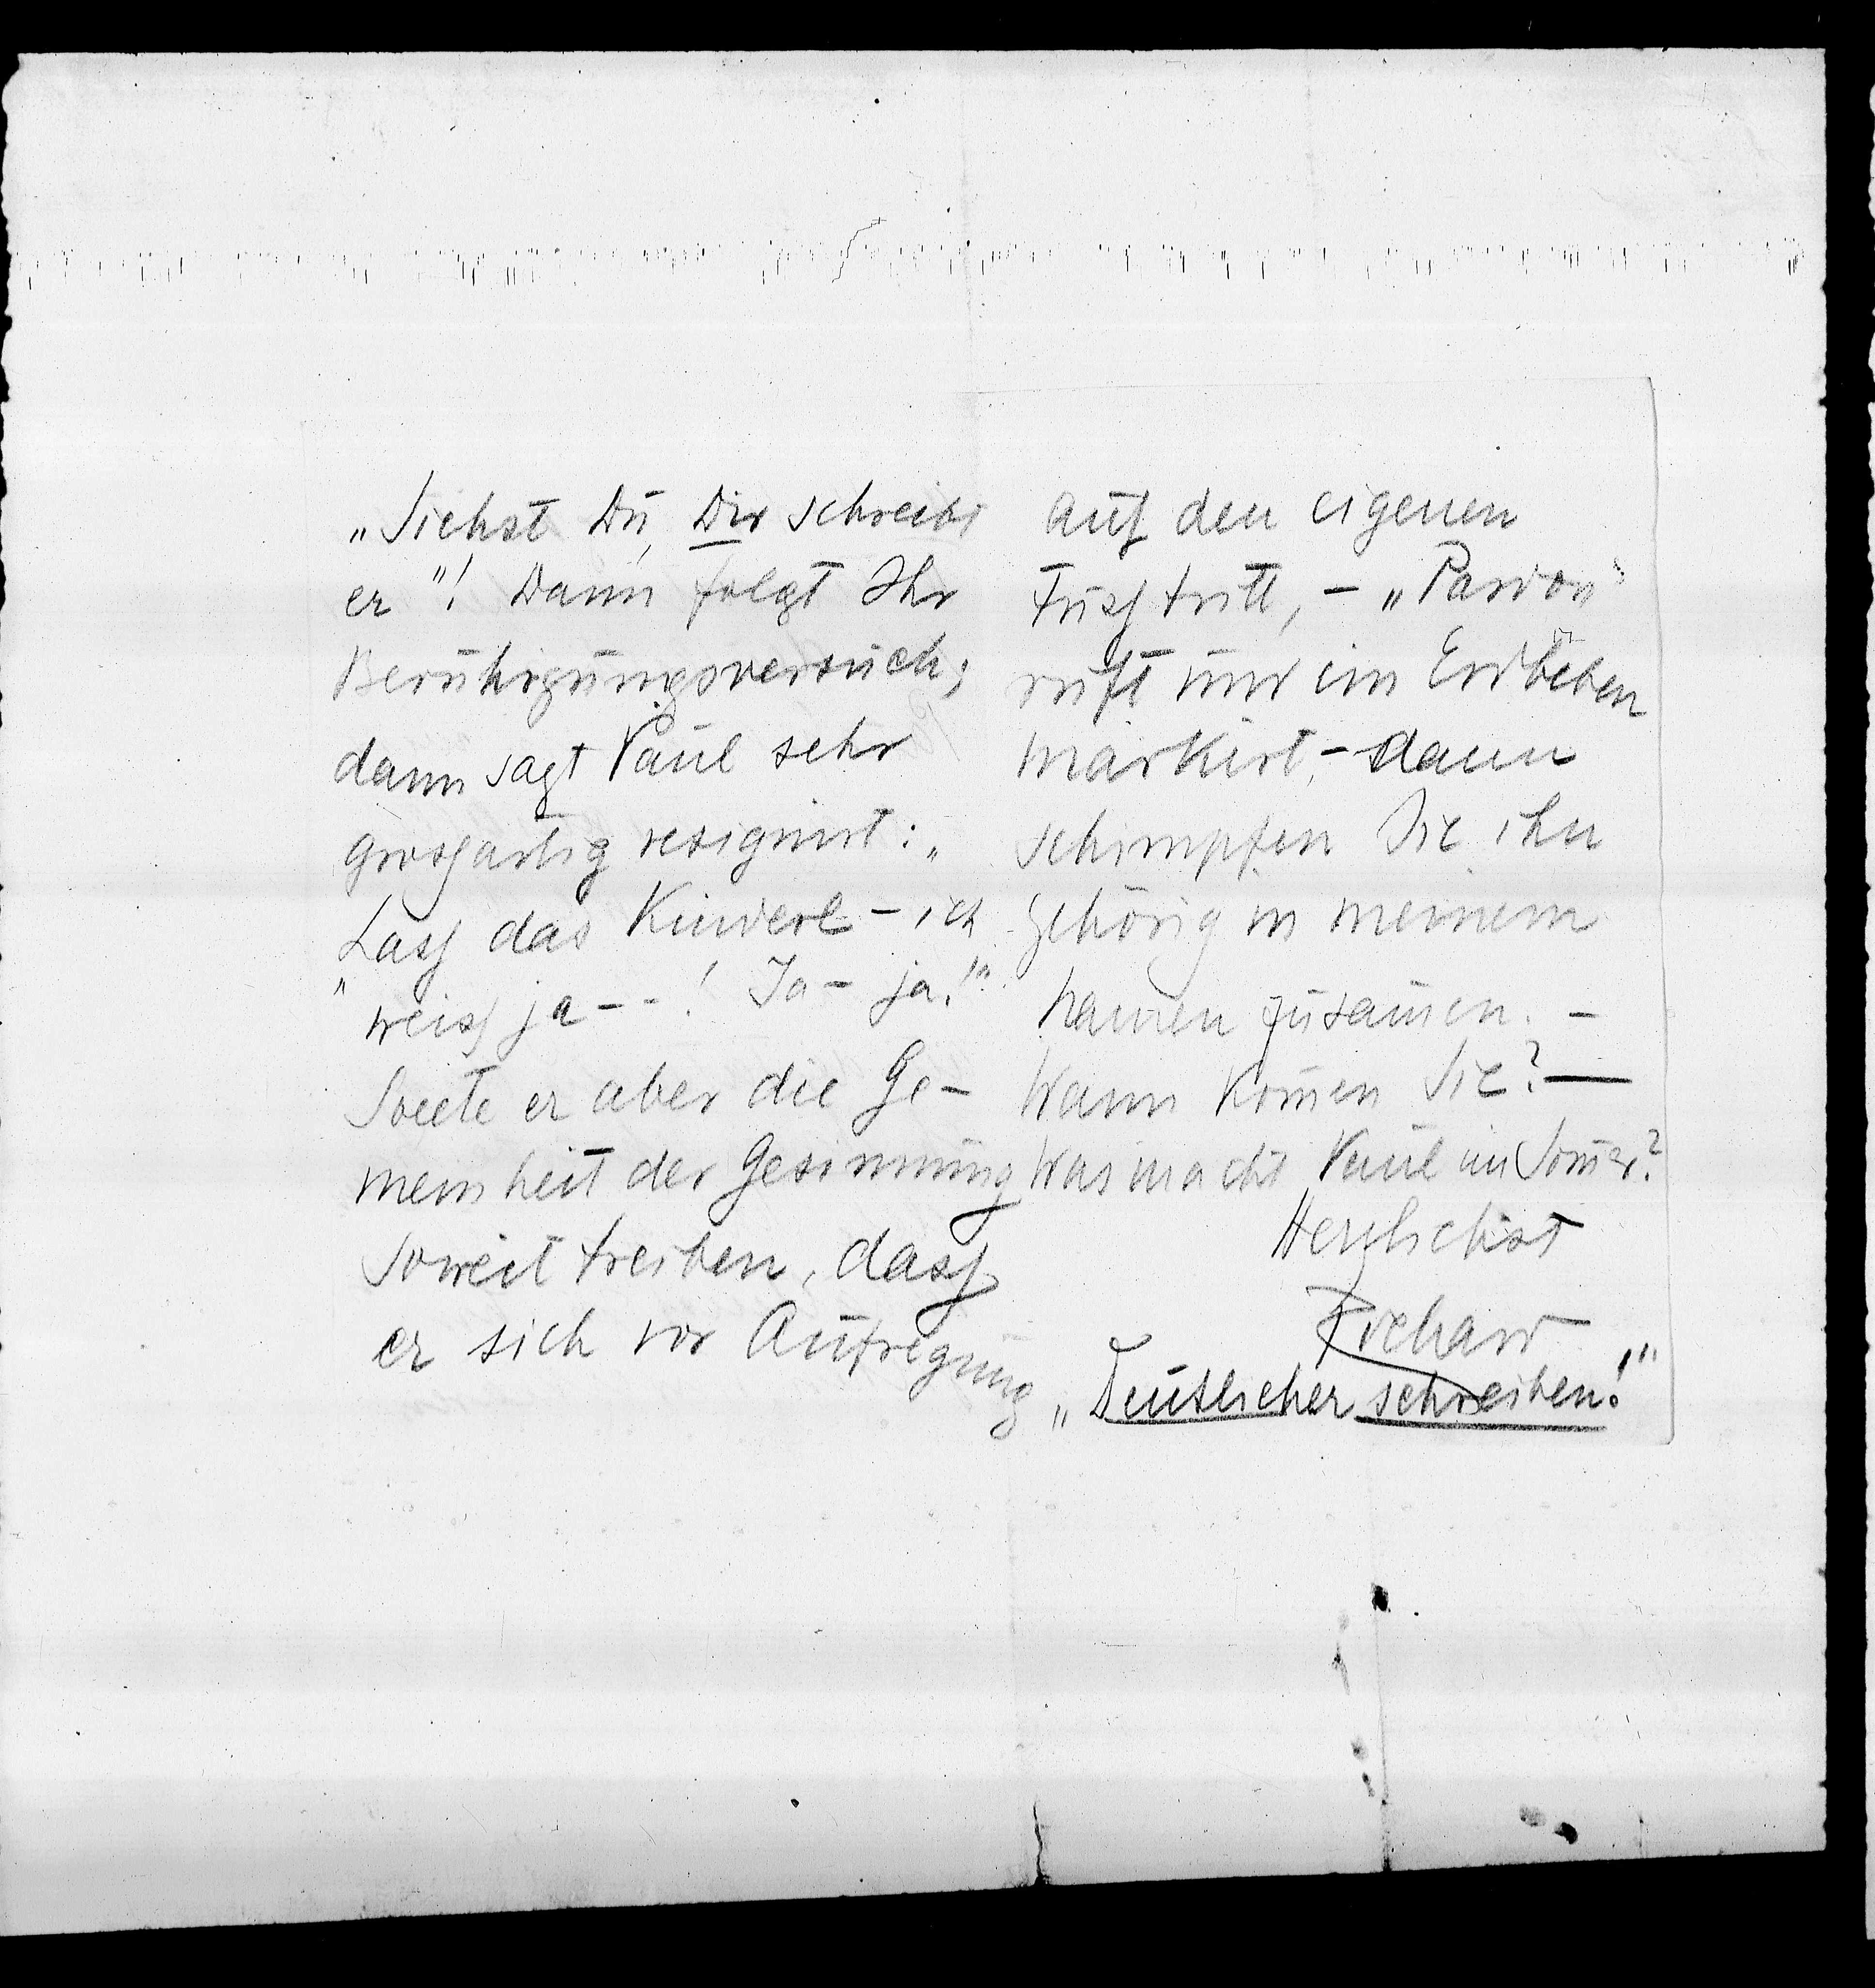 „Siehst Du, Dir schreibt
er"! Dann folgt Ihr
Beruhigungsversuch;
dann sagt Paul sehr
grossartig resignirt: „
Lass das Kinderl – ich
„weiss ja - - ! Ja – ja!"
Sollte er aber die Ge-
meinheit der Gesinnung
soweit treiben, dass
er sich vor Aufregung
auf den eigenen
Fuss tritt, – „Pardon"
ruft und ein Erdbeben
markirt, – dann
schimpfen Sie ihn
gehörig in meinem
Namen zusam̄en. –
Wann kom̄en Sie? —
Was macht Paul im Som̄er?
Herzlichst
Richard
„Deutlicher schreiben!"